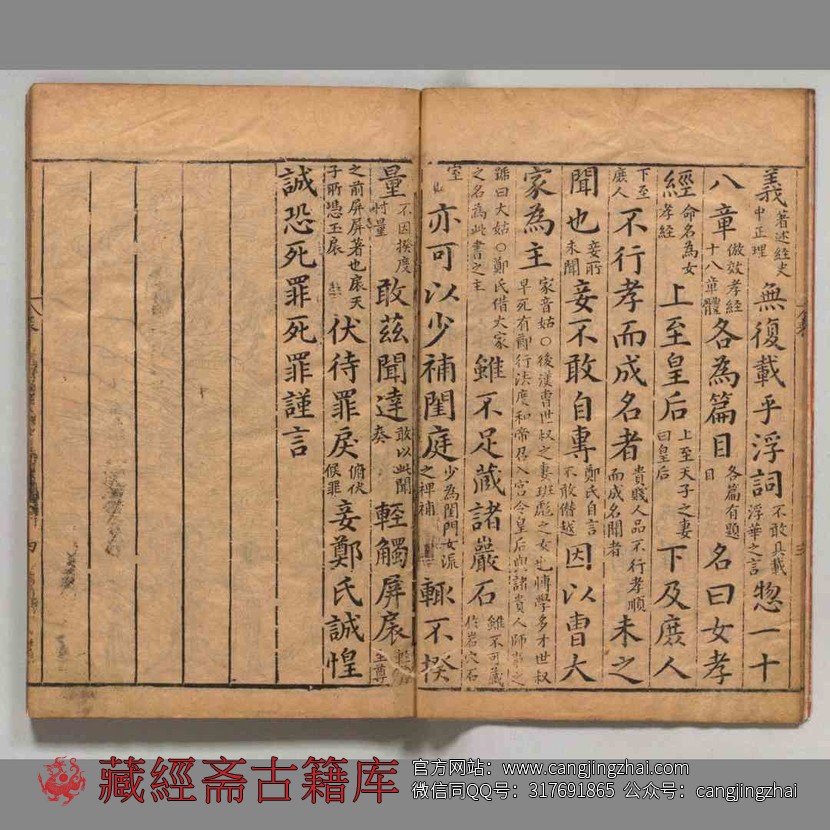 義著述經史中正理無復載乎浮詞不敢具載浮華之言惣一十
八章倣效孝經十八章體各為篇目各篇有題目名曰女孝
經命名為女孝經上至皇后上至天子之妻曰皇后下及庻人
下至庻人不行孝而成名者貴賤人品不行孝順而成名聞者未之
聞也妾所未聞妾不敢自專鄭氏自言不敢僭越因以曹大
家為主家音姑○後漢曹世叔之妻班彪之女也博學多才世叔早死有節行法度和帝召入宮令皇后與諸貴人師事之
號曰大姑○鄭氏借大家之名為此書之主雖不足藏諸巖石雖不可藏於岩穴石
室亦可以少補閨庭少為閨門女流之裨補輒不揆
量不因揆度忖量敢茲聞達敢以此聞奏輕觸屏扆
之前屏屏著也扆天子所憑玉扆伏待罪戾俯伏候罪妾鄭氏誠惶
誠恐死罪死罪謹言
四
藏經斋古籍库
官方网站：www.cangjingzhai.com
微信同QQ号：317691865 公众号：cangjingzhai